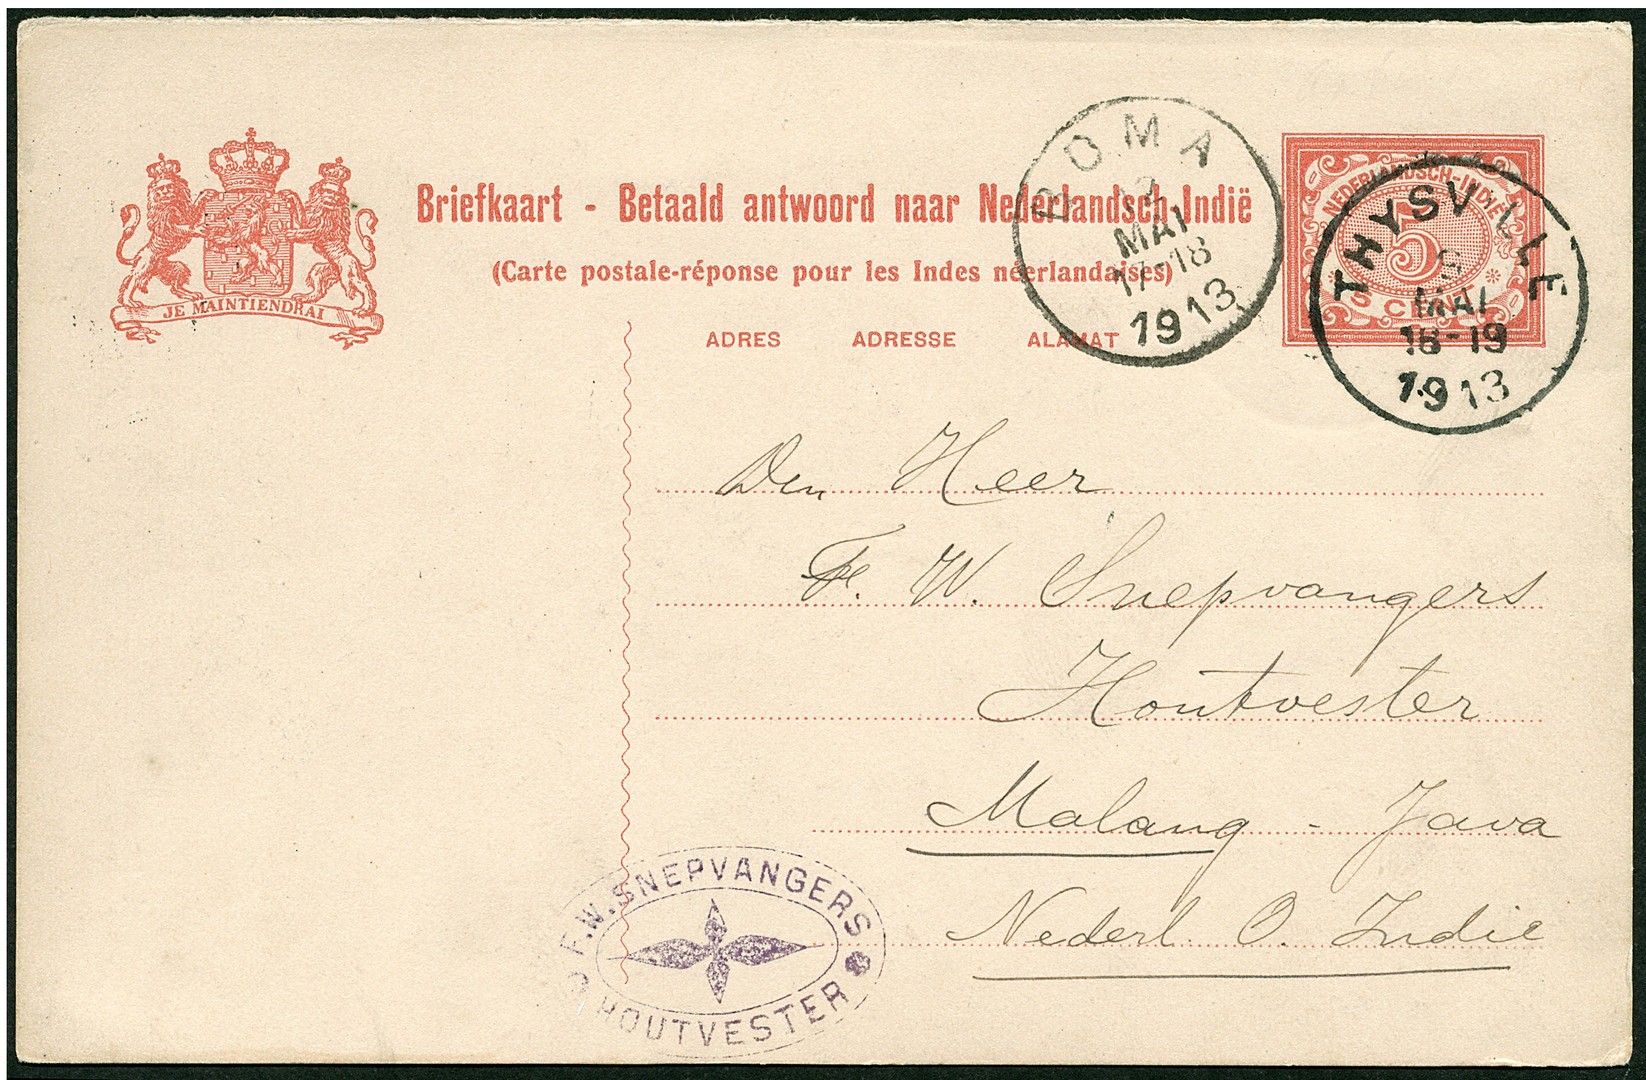 Briefkaart - Betaald antwoord naar Nederlandsch-Indië
(Carte postale-réponse pour les Indes néerlandaises)
JE MAINTIENDRAI
ADRES ADRESSE ALAMAT
BOMA
12
MAI
17-18
1913
NEDERLANDSCH-INDIË
5
5 CENT
THYSVILLE
MAI
18-19
1913
Den Heer
F. W. Snepvangers
Houtvester
Malang - Java
Nederl. O. Indie
F.W. SNEPVANGERS
HOUTVESTER